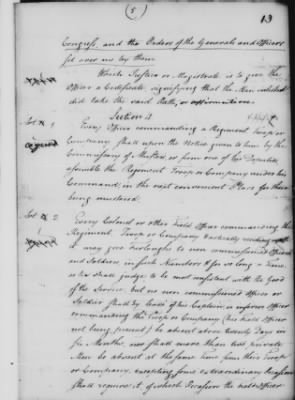 (5)
13
Congress, and the Orders of the Generals and Officers
set over me by them
Which Justice or Magistrate is to give the
Officer a Certificate signifying that the Man inlisted
did take the said Oath, or affirmation.
Section 4
Art. 1
agreed
Every Officer commanding a Regiment Troop or
Company shall upon the Notice given to him by the
Commissary of Musters, or from one of his Deputies
assemble the Regiment Troop or Company under his
Command, in the next convenient Place for their
being mustered.
Art. 2
Every Colonel or other Field Officer commanding the
Regiment Troop or Company & actually residing with
it may give Furloughs to non commissioned Officers
and Soldiers, in such Numbers & for so long a Time,
as he shall judge to be most consistent with the Good
of the Service, but no non commissioned Officer or
Soldier shall by leave of his Captain, or inferior Officer
commanding the Troop or Company (his Field Officer
not being present) be absent above twenty Days in
six Months, nor shall more than two private
Men be absent at the same Time from their Troop
or Company, excepting some extraordinary Occasion
shall require it, of which Occasion the Field Officer